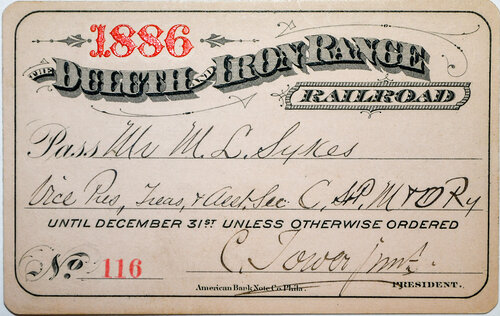 1886
THE DULUTH AND IRON RANGE
RAILROAD
Pass Mr M. L. Sykes
Vice Pres, Treas, & Asst Sec C, St P, M & O Ry
UNTIL DECEMBER 31ST UNLESS OTHERWISE ORDERED
No. 116
C. Tower Junr.
PRESIDENT.
American Bank Note Co. Phila.